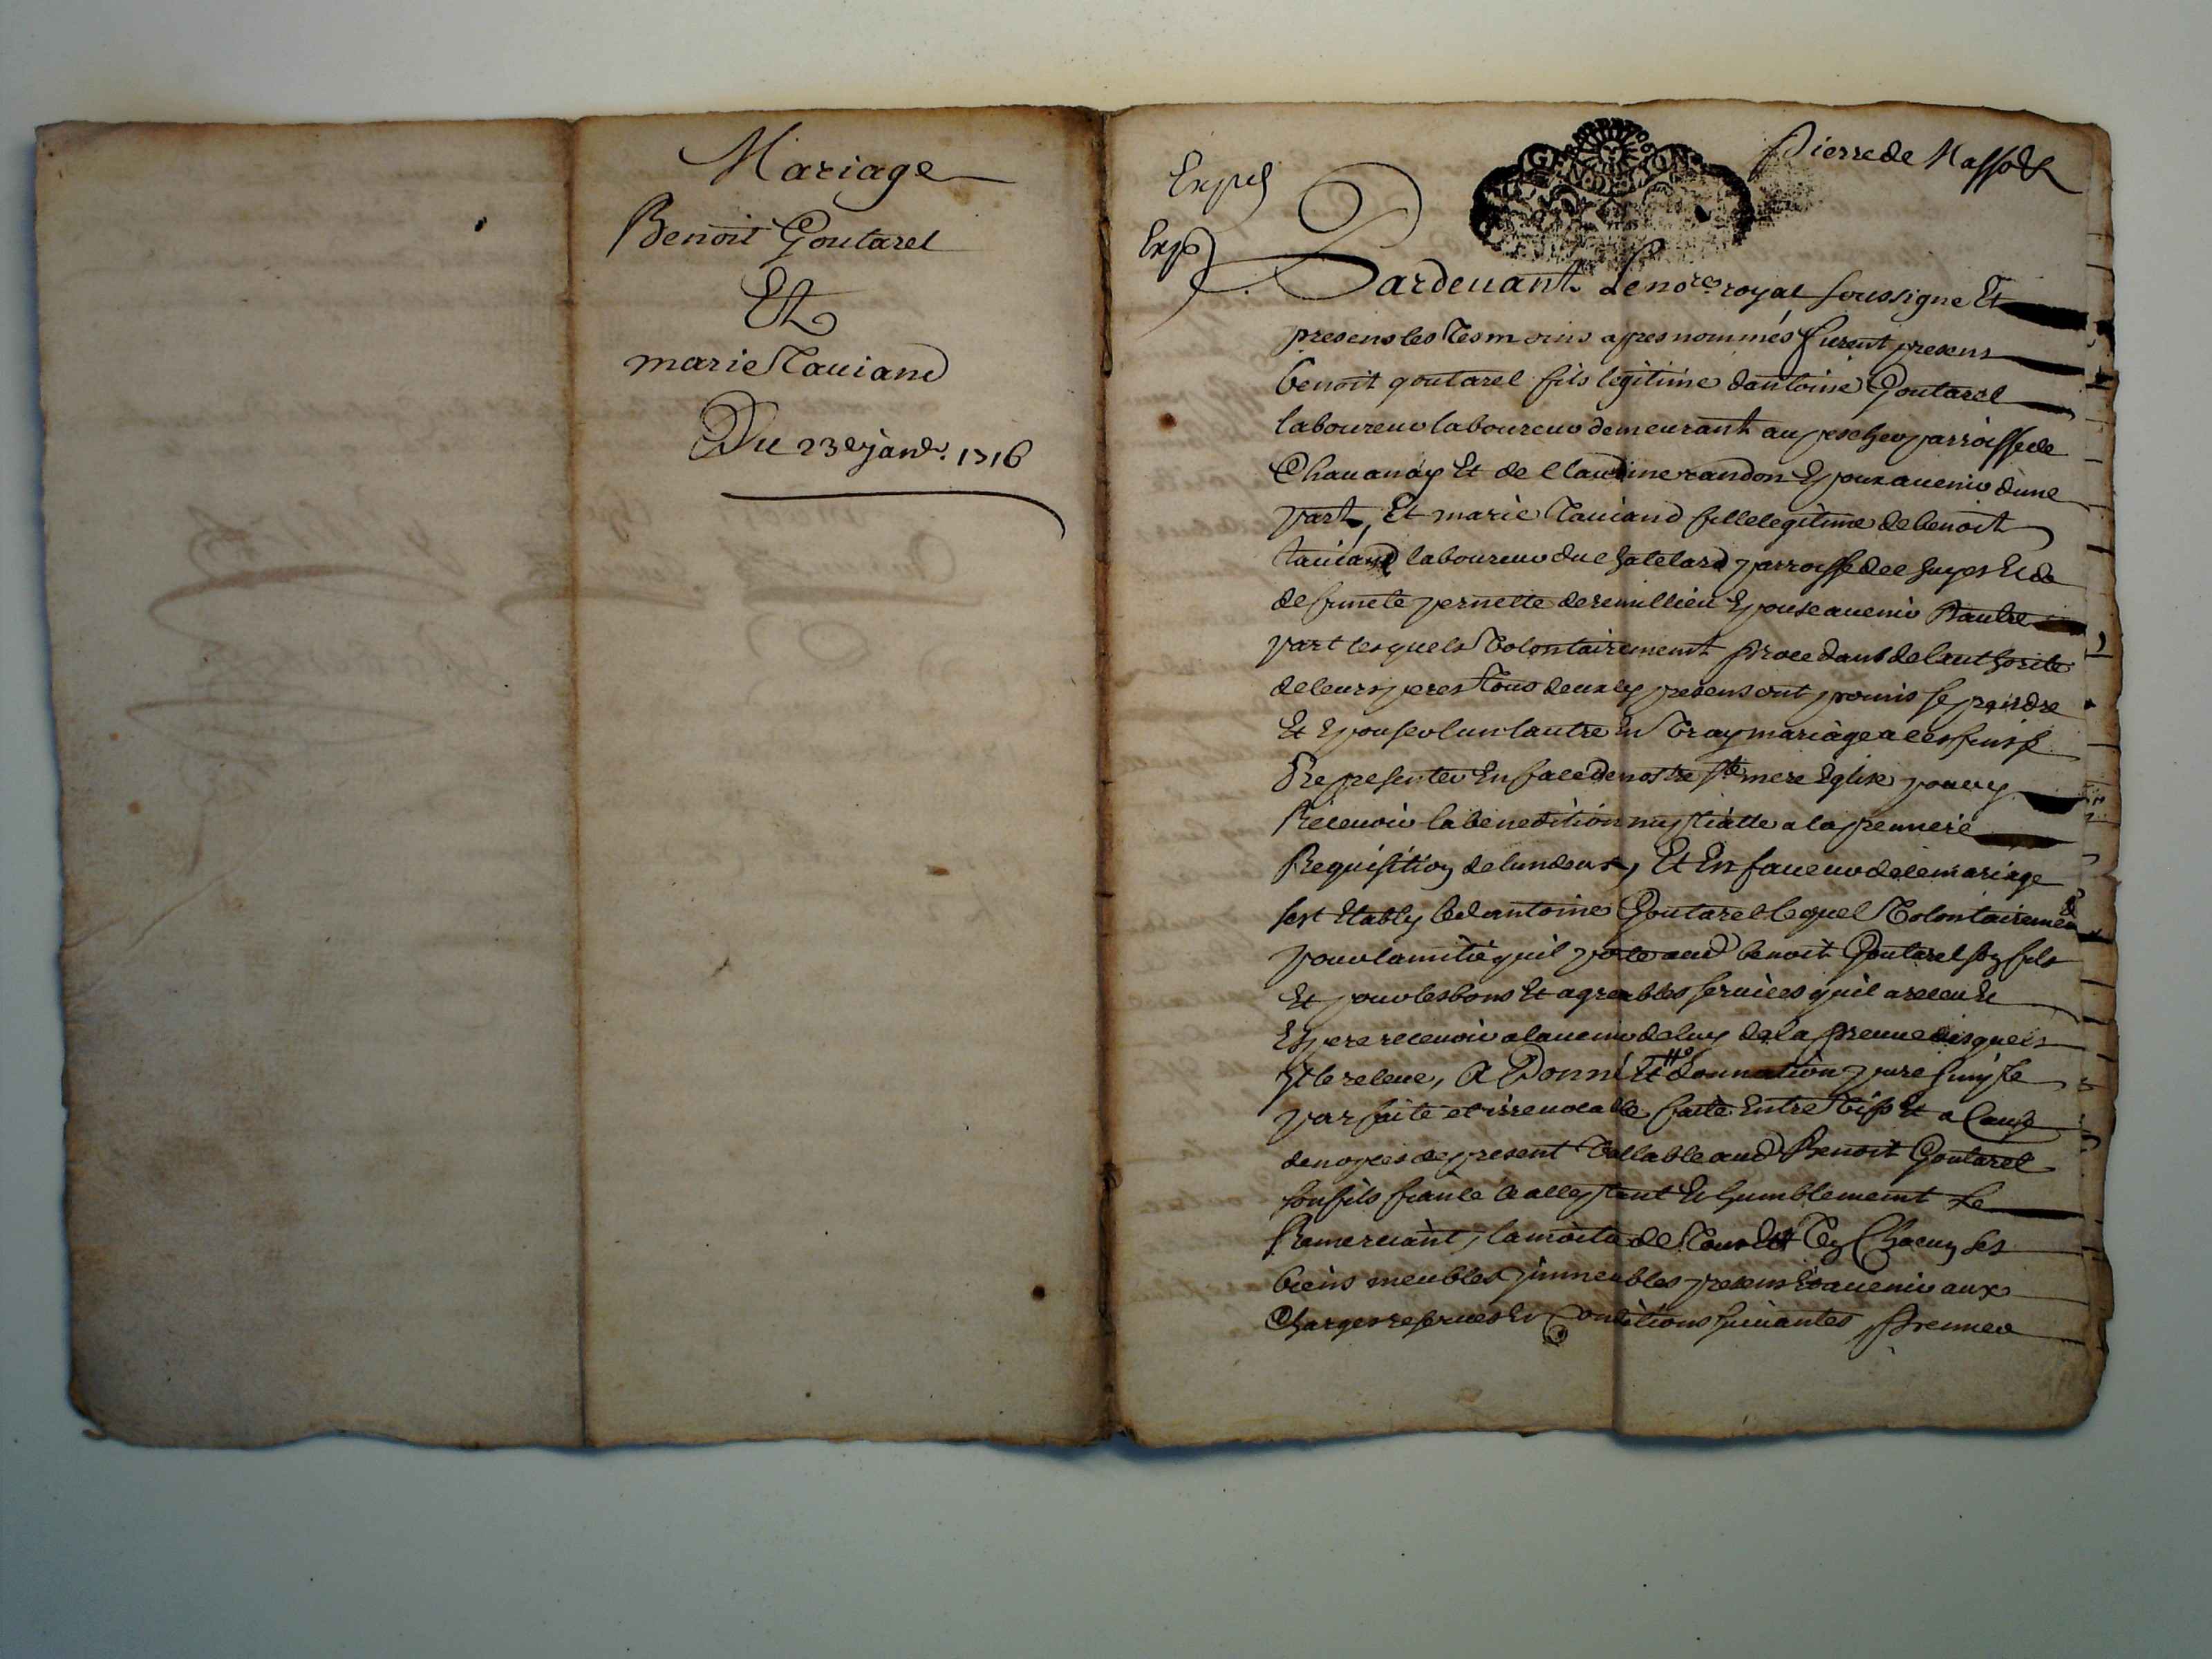 Mariage
Benoit Goutarel
Et
marie Tauiand
Du 23e janr. 1716
Exped
Exp
Pierre de Massod
GENERALITE DE LYON
Pardeuant Le nore royal soussigne Et
presens les tesmoins apres nommés furent presens
benoit goutarel fils legitime dantoine Goutarel
laboureur laboureur demeurant au pescher parroisse de
Chauanay Et de Claudine randon Epoux auenir dune
part, Et marie Tauiand fille legitime de benoit
tauiand laboureur du chatelard parroisse de Et de
defunete pernette deremillieu Epouse auenir dautre
part lesquels volontairement procedant de lauthorite
de leurs peres tous deux icy presens ont promis se prendre
Et Epouser lun lautre En vray mariage a ces fins se
Representer En face de nostre ste mere Eglise pour y
Receuoir la benedition nuptialle a la premiere
Requisition de lun deux, Et En faueur de ce mariage
sest Etably led antoine Goutarel lequel volontairement
pour lamitié quil porte aud benoit Goutarel son fils
Et pour les bons Et agreables seruices quil a receu Et
Espere receuoir a lauenir de luy de la preuue desquels
Il le releue, A Donné Et donnation pure simple
parfaite et irreuocable faite Entre vifs Et a Cause
de nopces de present vallable aud Benoit Goutarel
son fils fiancé Et humblement le
Remerciant, la moitié de Tous Et Un Chacun ses
biens meubles immeubles presens Et auenir aux
Charges reserues Et Conditions suiuantes premier